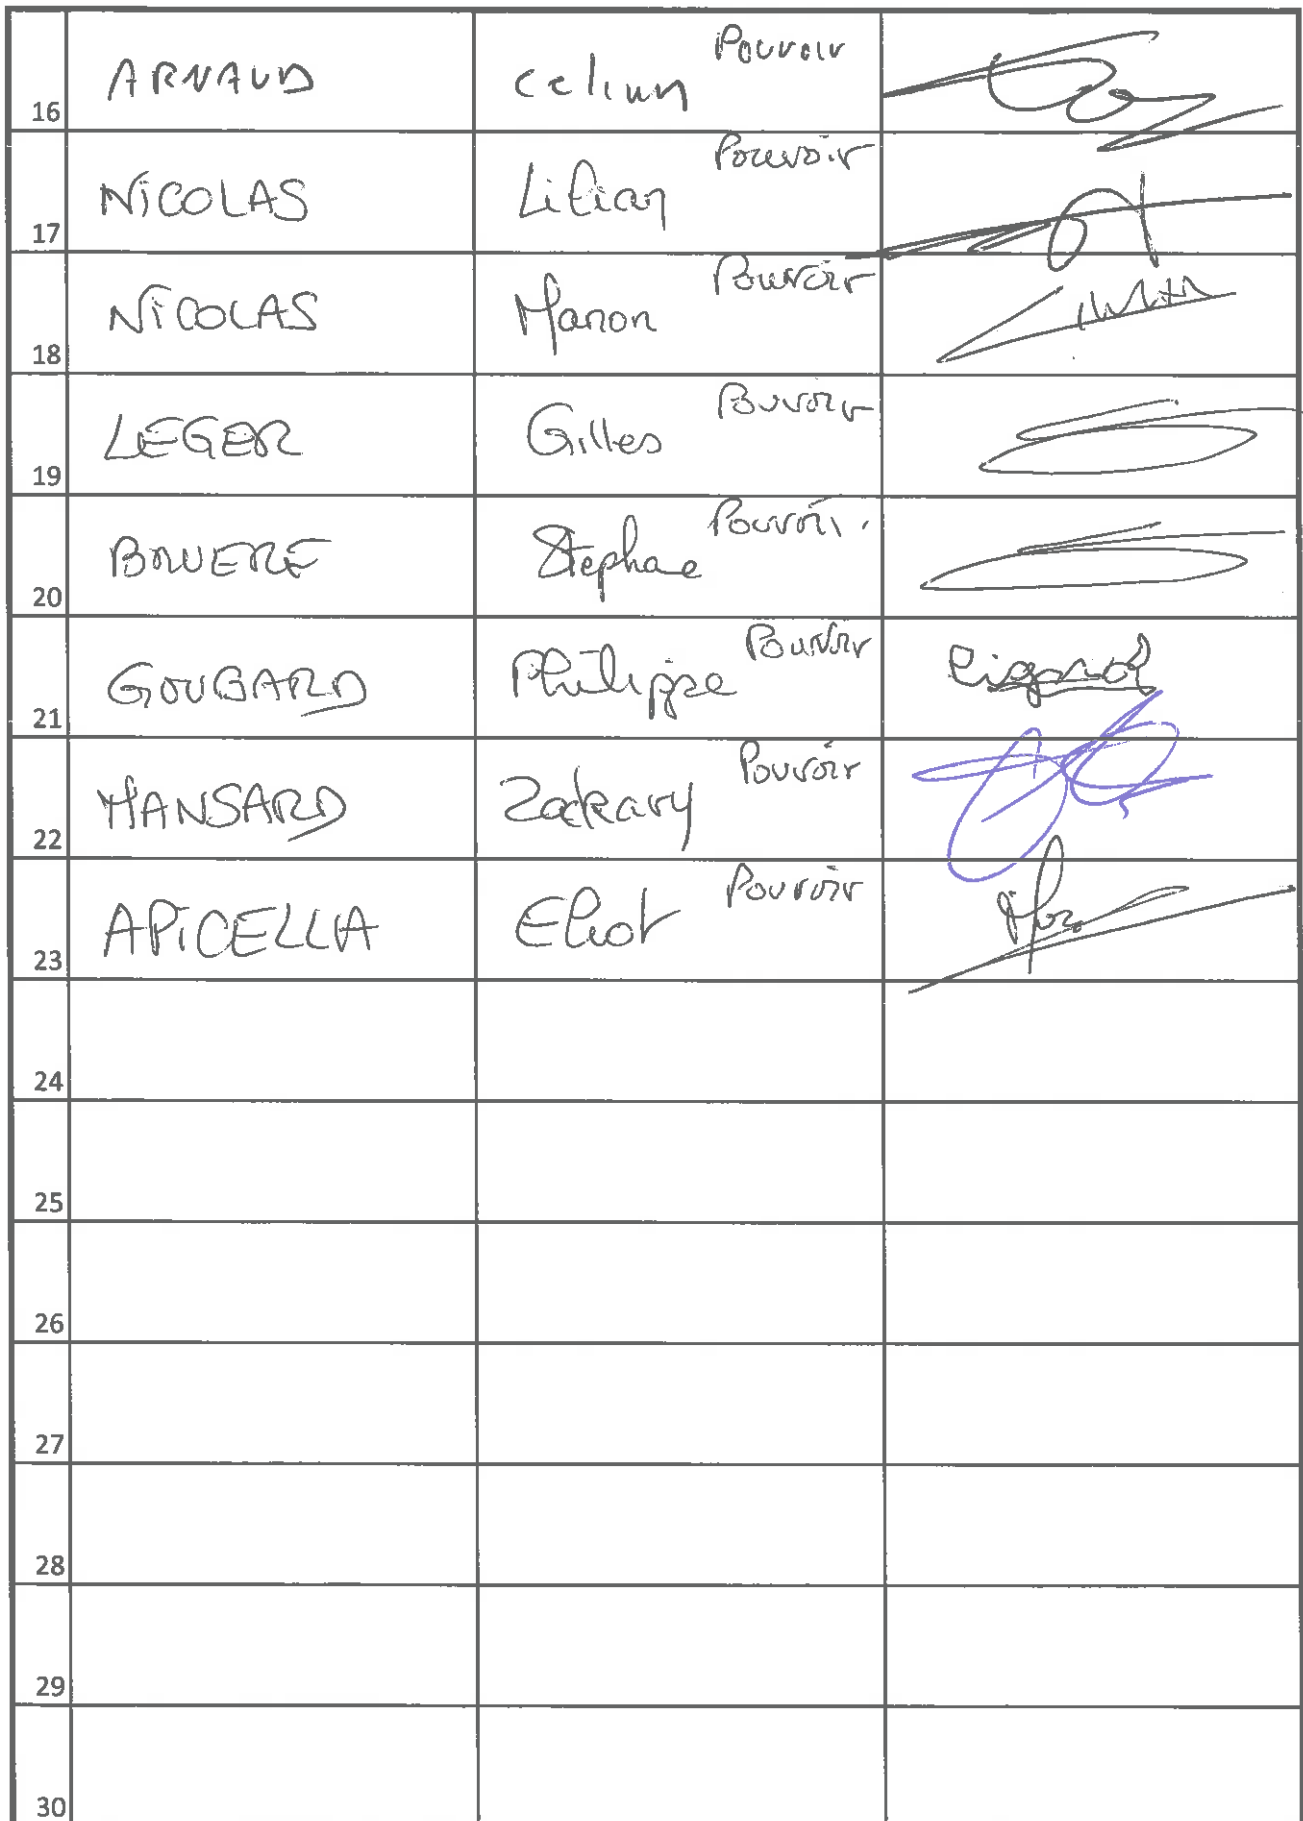 16 ARNAUD Celian Pouvoir
17 NiCOLAS Lilian Pouvoir
18 NiCOLAS Manon Pouvoir
19 LEGER Gilles Pouvoir
20 BRUERE Stephane Pouvoir
21 GOUBARD Philippe Pouvoir
22 MANSARD Zackary Pouvoir
23 APiCELLA Eliot Pouvoir
24
25
26
27
28
29
30